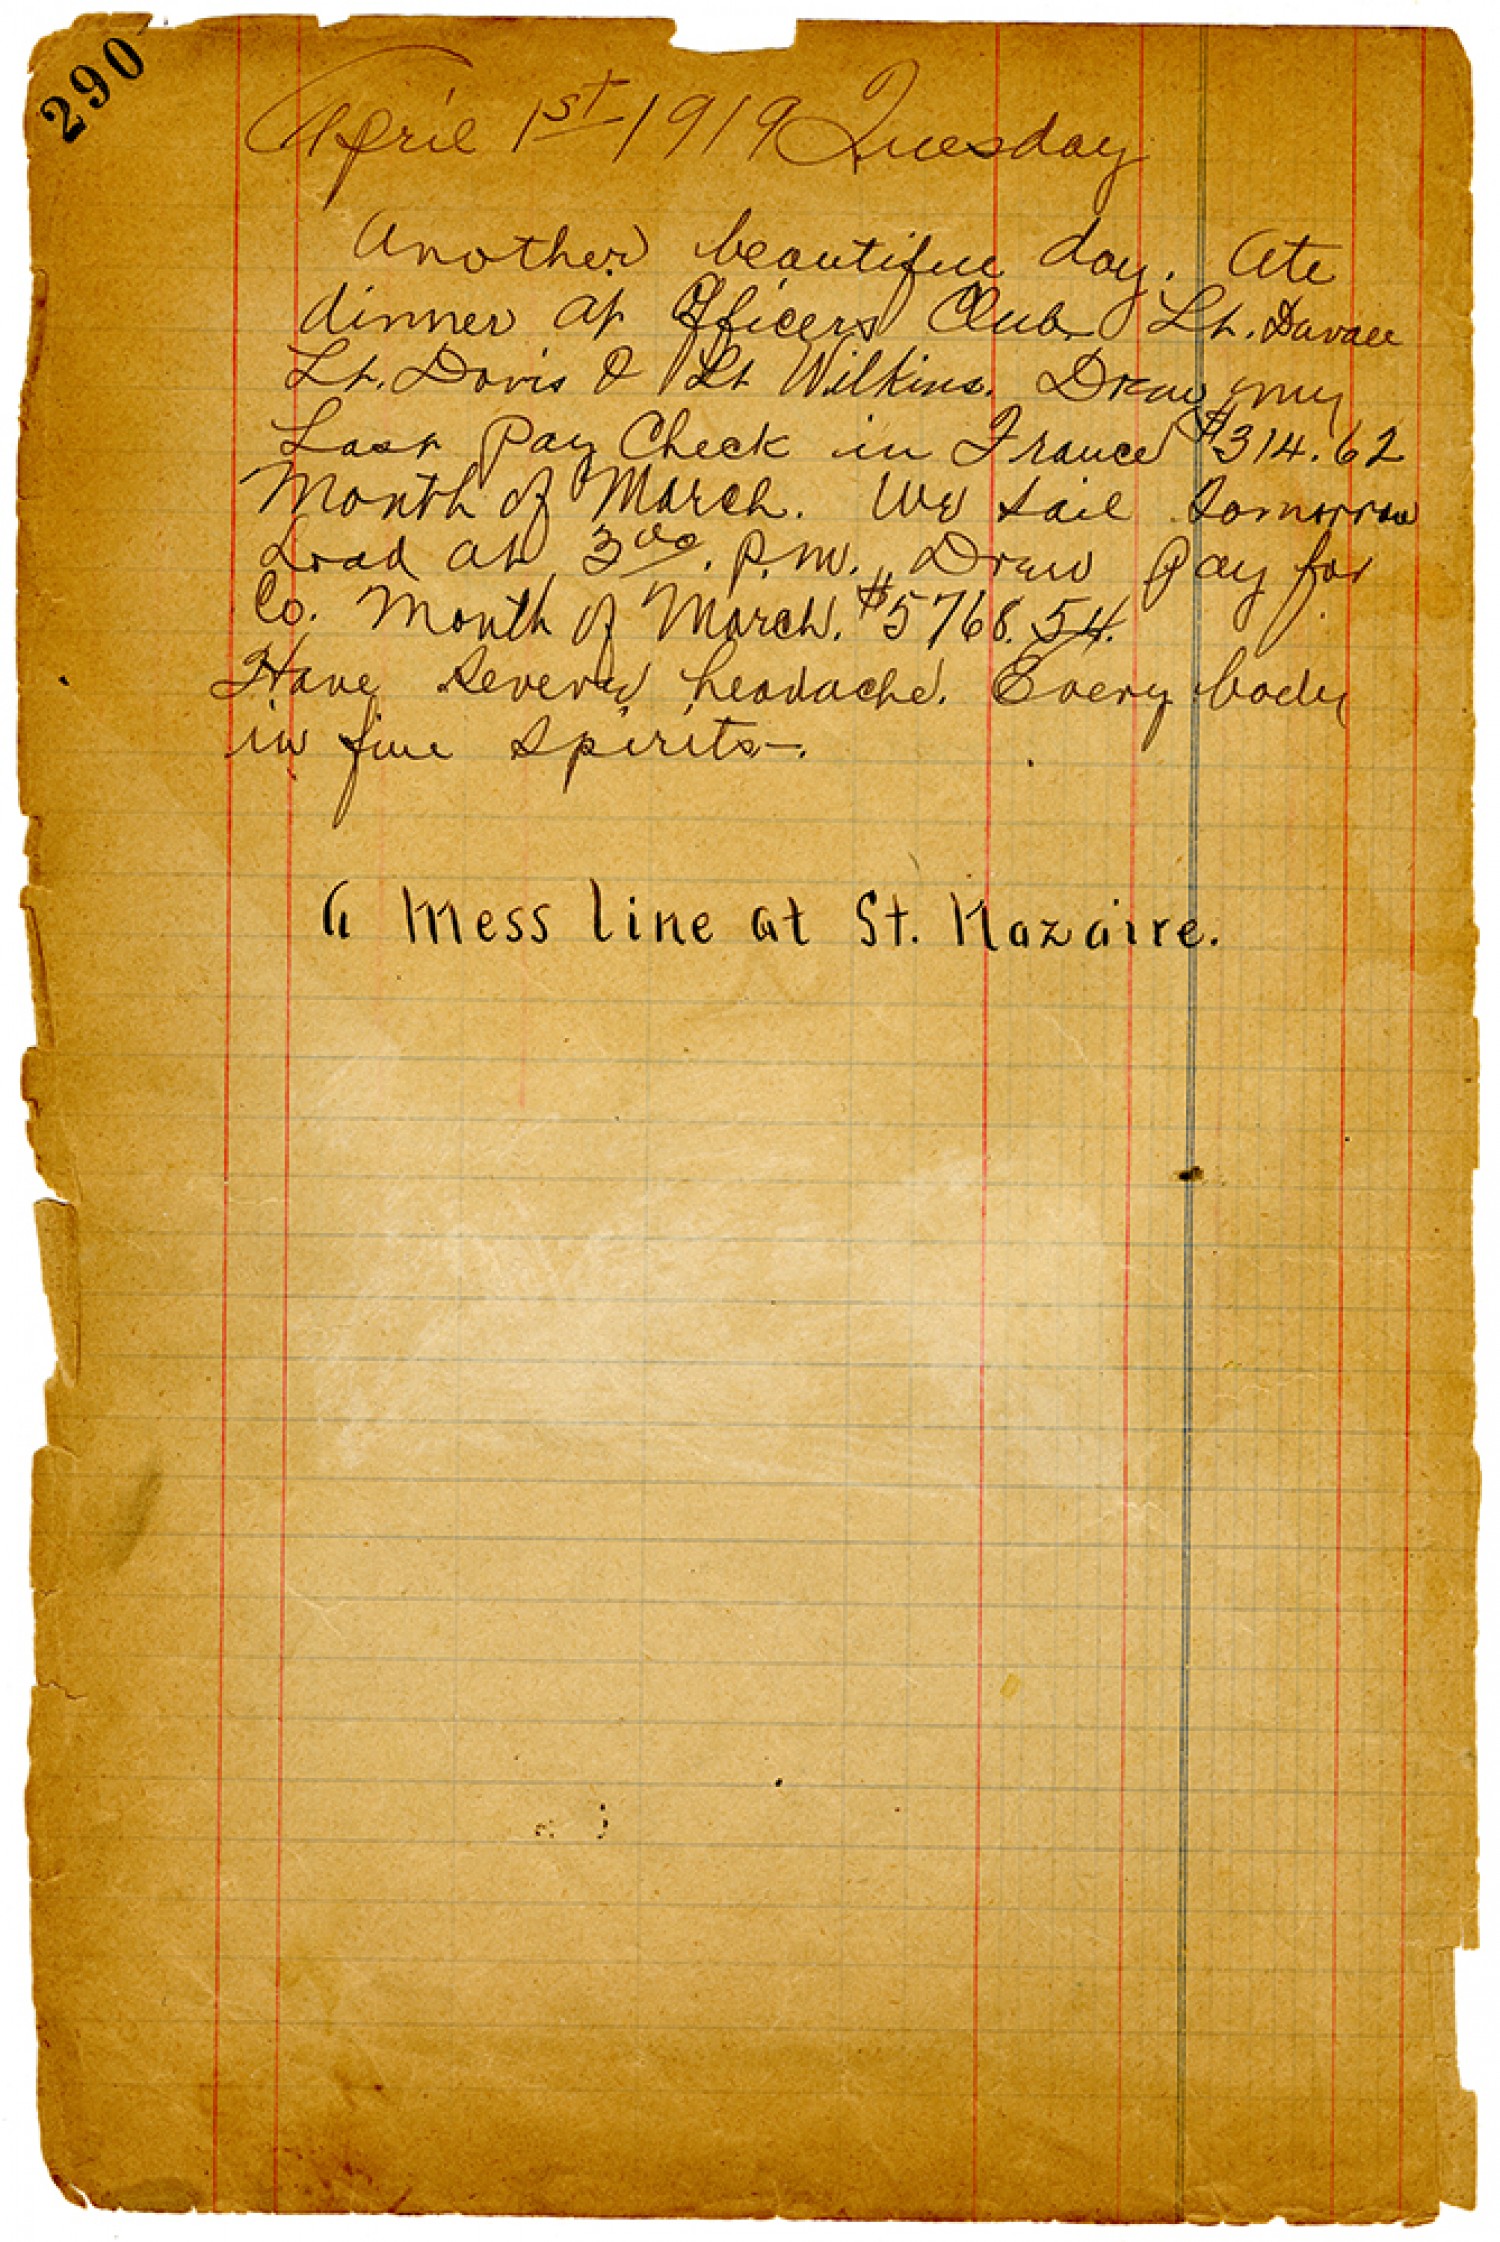 290
April 1st 1919 Tuesday
Another beautiful day. Ate
dinner at Officers Club Lt.
Lt. Davis & Lt Wilkins. Drew my
Last Pay Check in France $314.62
Month of March. We sail tomorrow
Load at 3oo. P.M. Drew pay for
Co. Month of March. $5768.54.
Have severe headache. Every body
in fine spirits—.
A Mess line at St. Nazaire.